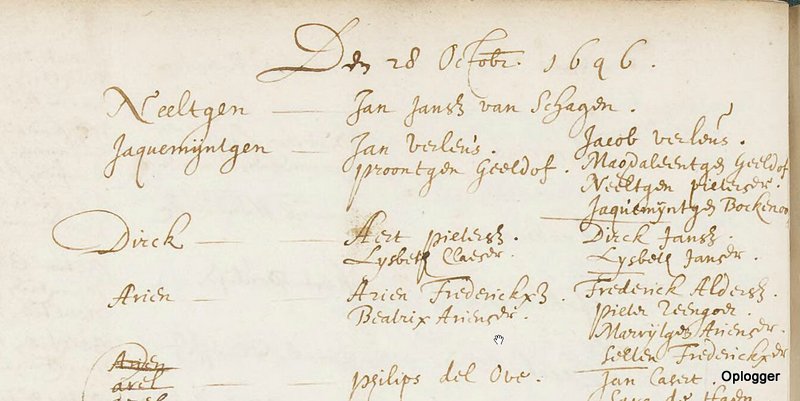 Den 28 Octobr. 1646.
Neeltgen — Jan Jansz van Schagen.
Jaquemijntgen — Jan verleus. Jacob verleus.
proontgen Geeldof. Magdaleentgen Geeldof
Neeltgen pieterser.
Jaquemijntgen Bockenoo
Dirck — Aert pietersz. Dirck Jansz.
Lysbeth Claeser. Lysbeth Janser.
Arien — Arien Frederickxz. Frederick Aldersz.
Beatrix Arienser. pieter
Marrijtgen Arienser.
Frederickxer
Arien
axel — philips del Ove. Jan Casert.
Oplogger